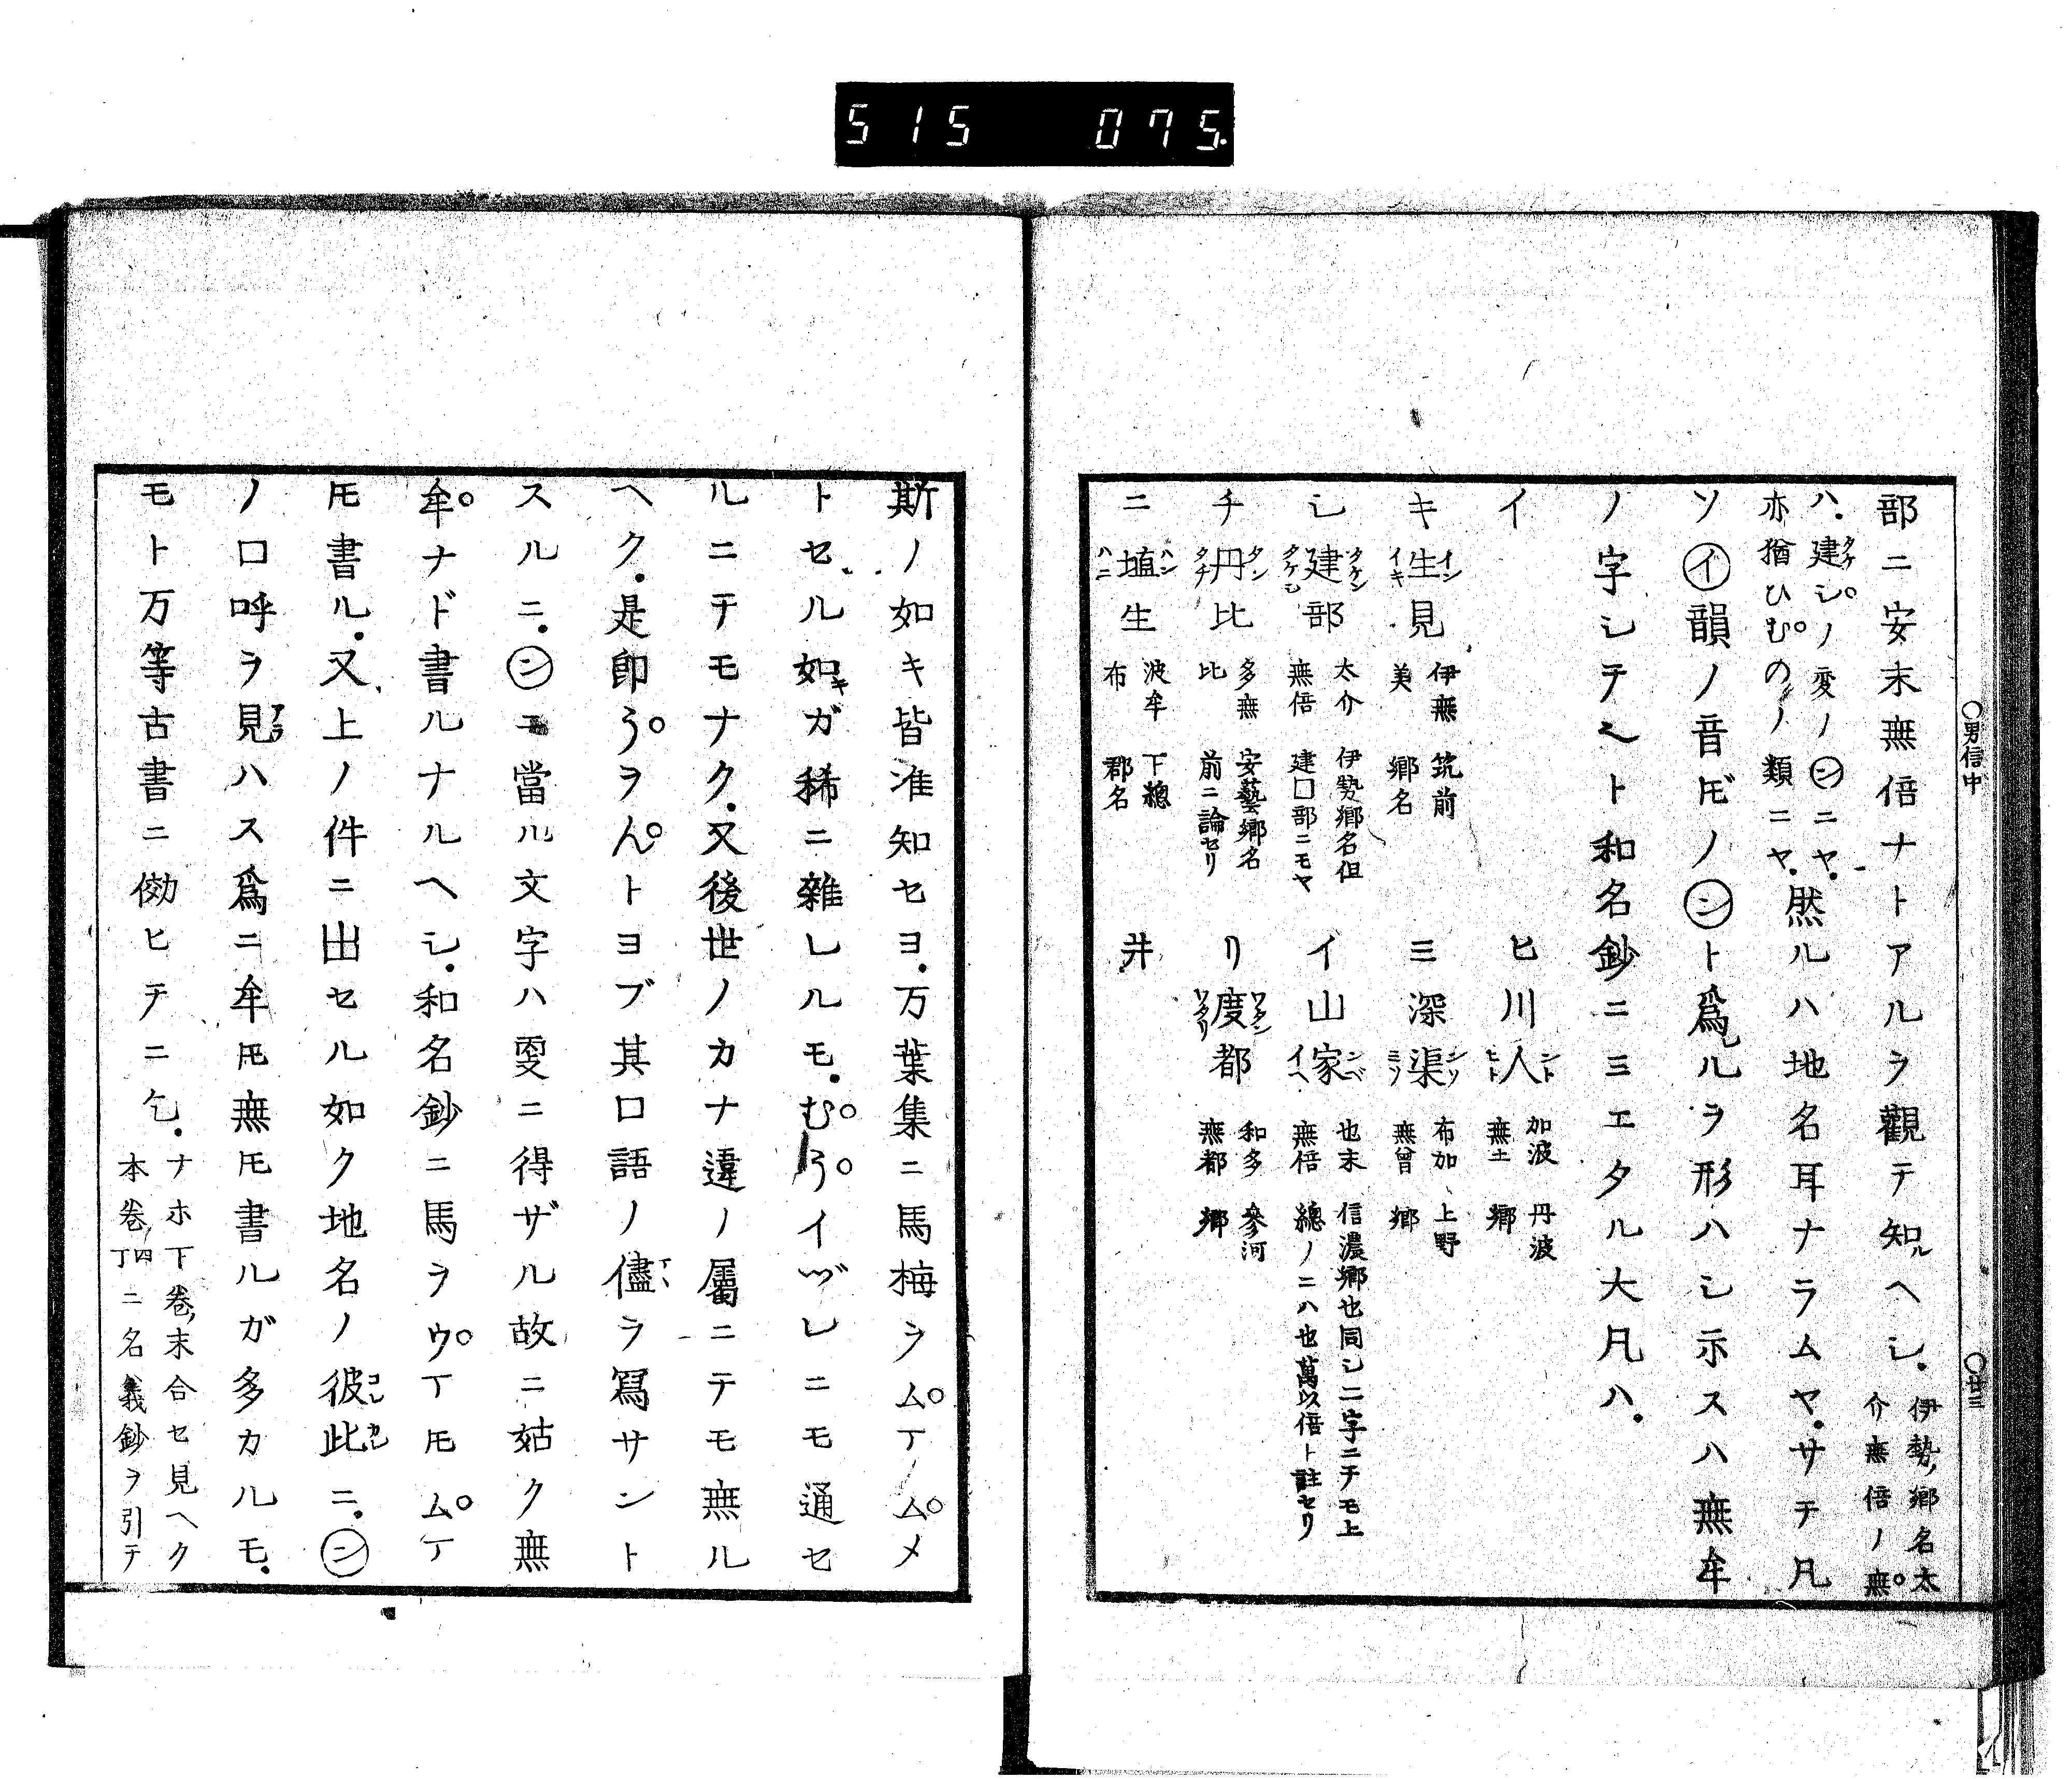 515 075.
○男信中 ○廿三
部ニ安末無倍ナトアルヲ觀テ知ルヘシ.伊勢ノ鄕名太介無倍ノ無
ハ.建シノ変ノンニヤ.ホ猶ひむのノ類ニヤ.然ルハ地名耳ナラムヤ.サテ凡
ソイ韻ノ音𪜈ノント爲ルヲ形ハシ示スハ無牟
ノ字シテ〻ト和名鈔ニミエタル大凡ハ.
イ ヒ 川人ントヒト 加波無土 丹波鄕
キ 生インイキ見 伊無美 筑前鄕名 ミ 深渠ンソミソ 布加無曾 上野鄕
シ 建タケンタケシ部 太介無倍 伊勢鄕名但建囗部ニモヤ イ 山家ンベイヘ 也末無倍 信濃鄕也同シ二字ニテモ上總ノニハ也萬以倍ト註セリ
チ 丹タンタチ比 多無比 安藝鄕名前ニ論セリ リ 度ワタンワタリ都 和多無都 參河鄕
ニ 埴ハンハニ生 波牟布 下總郡名 井
斯ノ如キ皆准知セヨ.万葉集ニ馬梅ヲム丅ムメ
トセル如キガ稀ニ雜レルモ.むうイヅレニモ通セ
ルニテモナク.又後世ノカナ違ノ屬ニテモ無ル
ヘク.是卽うヲんトヨブ其口語ノ儘ヲ寫サント
スルニ.ンニ當ル文字ハ叓ニ得ザル故ニ姑ク無
牟ナド書ルナルヘシ.和名鈔ニ馬ヲウ丅𪜈ム丅
𪜈書ル.又上ノ件ニ出セル如ク地名ノ彼此ニ.ン
ノ口呼ヲ見ハス爲ニ牟𪜈無𪜈書ルガ多カルモ.
モト万等古書ニ傚ヒテニ乞.ナホ下卷ノ末合セ見ヘク本卷四丁ニ名義鈔ヲ引テ